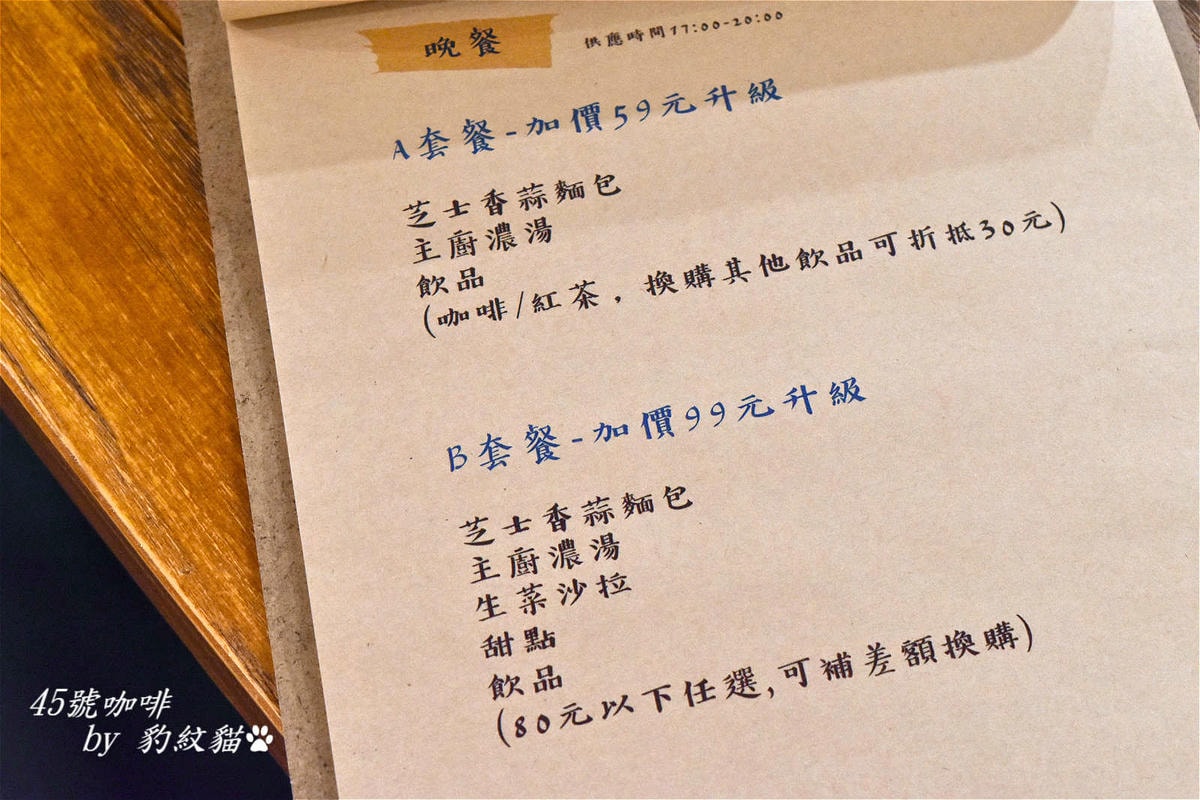 晚餐 供應時間17:00-20:00
A套餐-加價59元升級
芝士香蒜麵包
主廚濃湯
飲品
(咖啡/紅茶，換購其他飲品可折抵30元)
B套餐-加價99元升級
芝士香蒜麵包
主廚濃湯
生菜沙拉
甜點
飲品
(80元以下任選,可補差額換購)
45號咖啡
by 豹紋貓